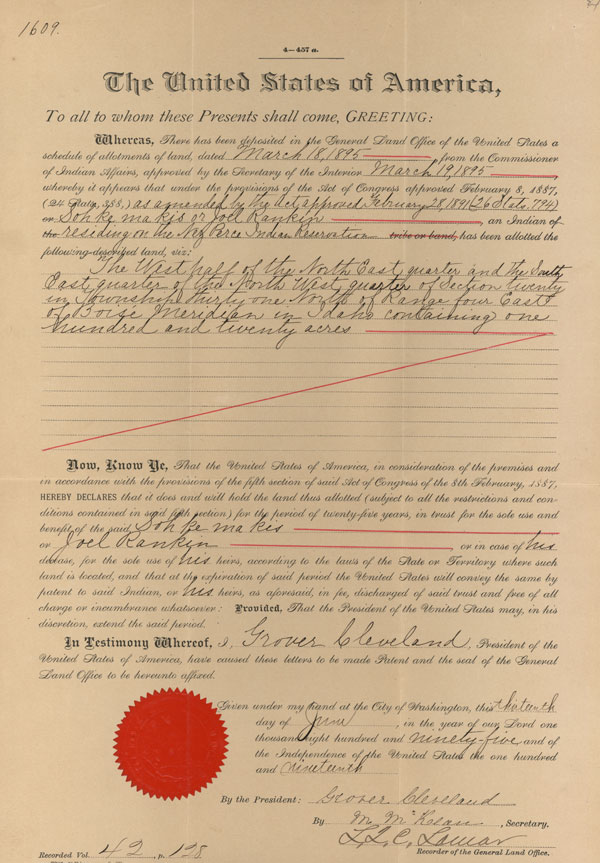 1609.
4—457 a.
The United States of America,
To all to whom these Presents shall come, GREETING:
Whereas, There has been deposited in the General Land Office of the United States a
schedule of allotments of land, dated March 18, 1895, from the Commissioner
of Indian Affairs, approved by the Secretary of the Interior March 19, 1895,
whereby it appears that under the provisions of the Act of Congress approved February 8, 1887,
(24 Stats., 388,) as amended by the Act approved February 28, 1891 (26 Stats. 794)
or Soh ke ma kis or Joel Rankin an Indian of
the residing on the Nez Perce Indian Reservation tribe or band, has been allotted the
following-described land, viz:
The West half of the North East quarter and the South
East quarter of the North West quarter of Section twenty
in Township thirty one North of Range four East
of Boise Meridian in Idaho containing one
hundred and twenty acres
Now, Know Ye, That the United States of America, in consideration of the premises and
in accordance with the provisions of the fifth section of said Act of Congress of the 8th February, 1887,
HEREBY DECLARES that it does and will hold the land thus allotted (subject to all the restrictions and con-
ditions contained in said fifth section) for the period of twenty-five years, in trust for the sole use and
benefit of the said Soh ke ma kis
or Joel Rankin, or in case of his
decease, for the sole use of his heirs, according to the laws of the State or Territory where such
land is located, and that at the expiration of said period the United States will convey the same by
patent to said Indian, or his heirs, as aforesaid, in fee, discharged of said trust and free of all
charge or incumbrance whatsoever: Provided, That the President of the United States may, in his
discretion, extend the said period.
In Testimony Whereof, I, Grover Cleveland, President of the
United States of America, have caused these letters to be made Patent and the seal of the General
Land Office to be hereunto affixed.
Given under my hand at the City of Washington, this thirteenth
day of June, in the year of our Lord one
thousand eight hundred and ninety-five and of
the Independence of the United States the one hundred
and nineteenth
By the President: Grover Cleveland
By M. McKean, Secretary.
L. Q. C. Lamar
Recorder of the General Land Office.
Recorded Vol. 42, p. 128